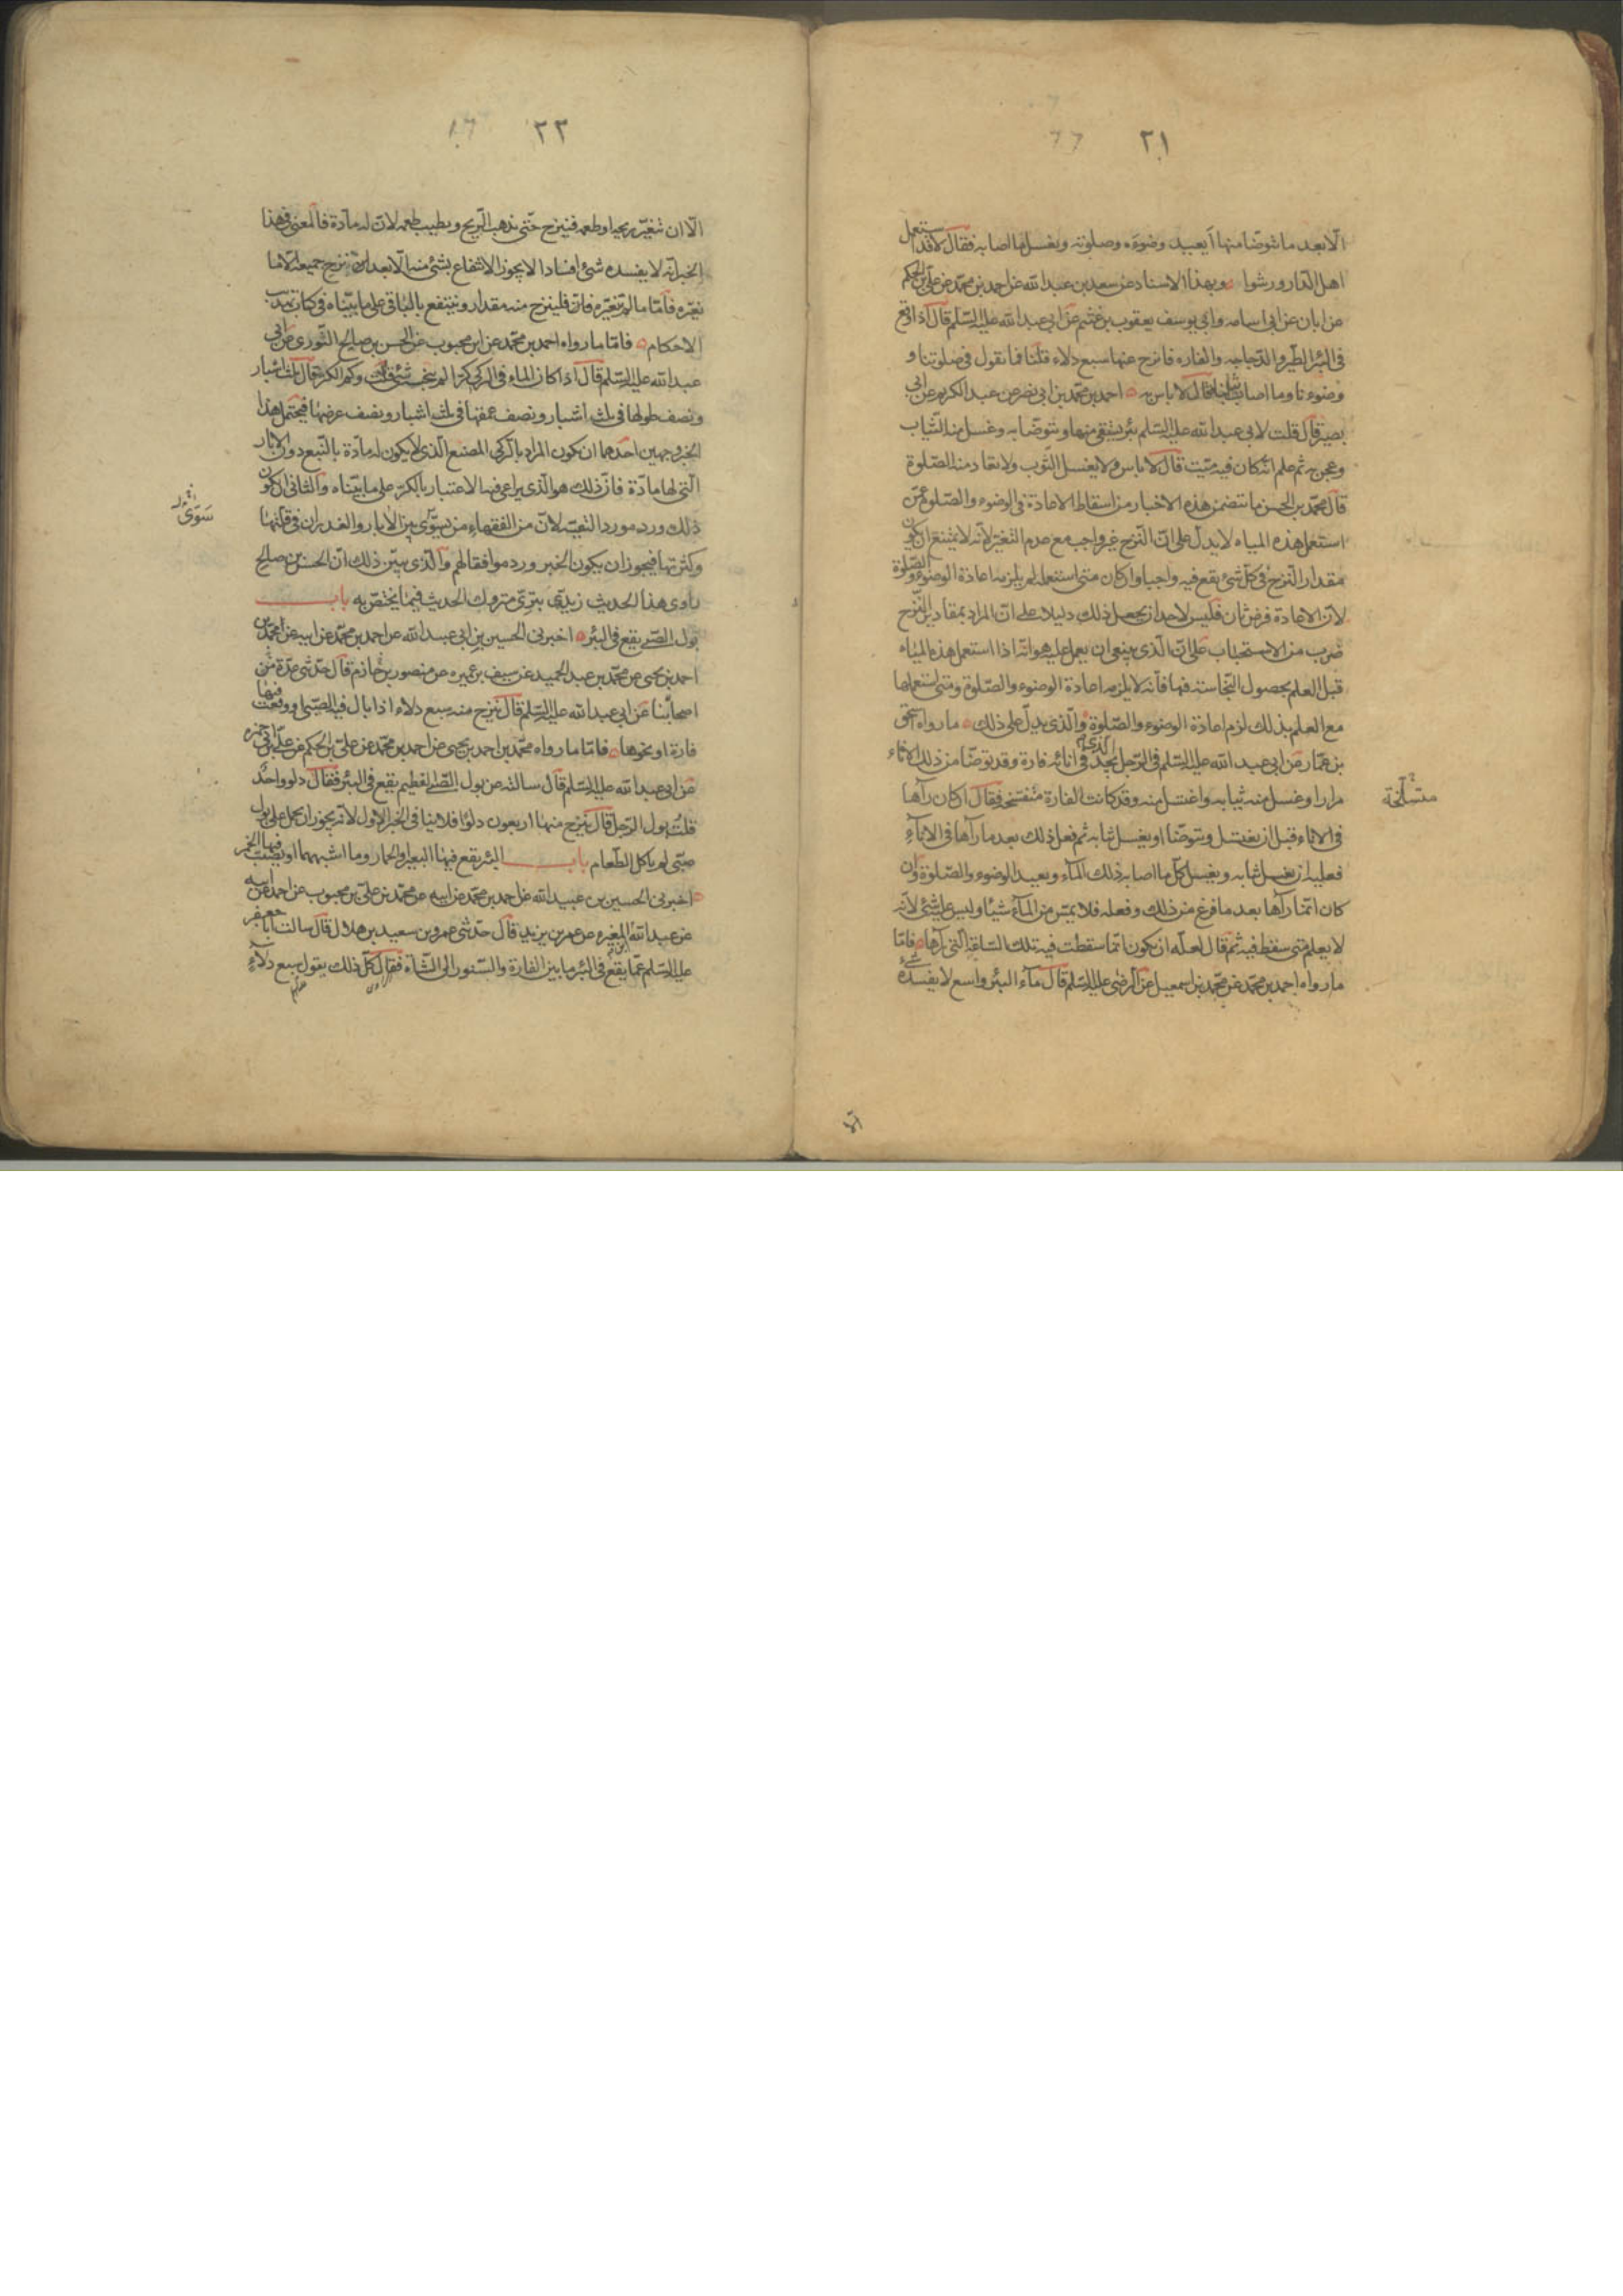 ٢١
الّا بعد ما يتوضّا منها أيعيد وضوءه وصلوته ويغسل ما اصابه فقال لا قد استعمل
اهل الدار ورشوا وبهذا الاسناد عن سعد بن عبد الله عن احمد بن محمّد عن علي بن الحكم
عن ابان عن ابي اسامه وابي يوسف يعقوب بن عثيم عن ابي عبد الله عليه السّلم قال اذا وقع
في البئر الطّير والدّجاجه والفاره فانزح عنها سبع دلاء قلنا فما تقول في صلوتنا و
وضوءنا وما اصاب ثيابنا فقال لا باس به احمد بن محمّد بن ابي نصر عن عبد الكريم عن ابي
بصير قال قلت لابي عبد الله عليه السّلم بئر يستقى منها ويتوضّا به وغسل منه الثّياب
وعجن به ثم علم انه كان فيه ميّت قال لا باس ولا يغسل الثّوب ولا تعاد منه الصّلوة
قال محمّد بن الحسن ما تتضمن هذه الاخبار من اسقاط الاعادة في الوضوء والصّلوة عمّن
استعمل هذه المياه لا يدلّ على انّ النّزح غير واجب مع عدم التغيّر لانّه لا يمتنع ان يكون
مقدار النّزح في كلّ شئ يقع فيه واجبا وان كان متى استعمله لم يلزمه اعادة الوضوء والصّلوة
لانّ الاعادة فرض ثان فليس لاحد ان يجعل ذلك دليلا على انّ المراد بمقادير النّزح
ضرب من الاستحباب على انّ الّذي ينبغي ان يعمل عليه هو انّه اذا استعمل هذه المياه
قبل العلم بحصول النّجاسة فيها فانّه لا يلزمه اعادة الوضوء والصّلوة ومتى استعملها
مع العلم بذلك لزم اعادة الوضوء والصّلوة والّذي يدلّ على ذلك ما رواه اسحق
بن عمّار عن ابي عبد الله عليه السّلم في الرّجل الذي يجد في انائه فارة وقد توضّا من ذلك الاناء
مرارا وغسل منه ثيابه واغتسل منه وقد كانت الفارة متفسّخة فقال ان كان رآها
متسلّخة
في الاناء قبل ان يغتسل ويتوضّا او يغسل ثيابه ثم فعل ذلك بعد ما رآها في الاناء
فعليه ان يغسل ثيابه ويغسل كلّ ما اصابه ذلك المآء ويعيد الوضوء والصّلوة وان
كان انّما رآها بعد ما فرغ من ذلك وفعله فلا يمسّ من المآء شيئا وليس عليه شئ لانّه
لا يعلم متى سقط فيه ثم قال لعلّه ان يكون انّما سقطت فيه تلك السّاعة الّتي رآها فامّا
ما رواه احمد بن محمّد عن محمّد بن اسمعيل عن الرّضى عليه السّلم قال مآء البئر واسع لا يفسده شئ
الّا
٢٢
الّا ان تغيّر ريحها وطعمه فينزح حتّى يذهب الرّيح ويطيب طعمه لانّ له مادّة فالمعنى في هذا
الخبر انّه لا يفسده شئ افسادا لا يجوز الانتفاع بشئ منه الّا بعد نزح جميعه الّا ما
يغيّره فامّا ما لم تغيّره فانّه فلينزح منه مقدار وينتفع بالباقي على ما بيّناه في كتاب تهذيب
الاحكام فامّا ما رواه احمد بن محمّد عن ابن محبوب عن الحسن بن صالح الثّوري عن ابي
عبد الله عليه السّلم قال اذا كان الماء في الركي كرّا لم ينجسه شئ قلت وكم الكر قال ثلث اشبار
ونصف طولها في ثلث اشبار ونصف عمقها في ثلث اشبار ونصف عرضها فيحتمل هذا
الخبر وجهين احدهما ان يكون المراد بالركي المصنع الّذي لا يكون له مادّة بالنّبع دون الابار
الّتي لها مادّة فانّ ذلك هو الّذي يراعى فيه الاعتبار بالكرّ على ما بيّناه والثاني ان يكون
ذلك ورد مورد التّقيّة لانّ من الفقهاء من يسوّي بين الابار والغدران في قلّتها
سوّى
وكثرتها فيجوز ان يكون الخبر ورد موافقا لهم والّذي يبيّن ذلك انّ الحسن بن صالح
راوي هذا الحديث زيديّ بتريّ متروك الحديث فيما يختصّ به باب
بول الصّبي يقع في البئر اخبرني الحسين بن ابي عبد الله عن احمد بن محمّد عن ابيه عن محمّد بن
احمد بن يحيى عن محمّد بن عبد الحميد عن سيف بن عميره عن منصور بن حازم قال حدّثني عدّة من
اصحابنا عن ابي عبد الله عليه السّلم قال ينزح منه سبع دلاء اذا بال فيها الصّبي او وقعت فيها
فارة او نحوها فامّا ما رواه محمّد بن احمد بن يحيى عن احمد بن محمّد عن علي بن الحكم عن علي بن ابي حمزه
عن ابي عبد الله عليه السّلم قال سالته عن بول الصّبي الفطيم يقع في البئر فقال دلو واحد
قلت بول الرّجل قال ينزح منها اربعون دلوا فلا ينافي الخبر الاول لانّه يجوز ان يحمل على بول
صبّي لم ياكل الطّعام باب البئر يقع فيها البعير والحمار وما اشبههما او يصبّ فيها الخمر
اخبرني الحسين بن عبيد الله عن احمد بن محمّد عن ابيه عن محمّد بن علي بن محبوب عن احمد عن ابيه
عن عبد الله بن المغيره عن عمر بن يزيد قال حدّثني عمرو بن سعيد بن هلال قال سالت ابا جعفر
عليه السّلم عمّا يقع في البئر ما بين الفارة والسّنور الى الشّاة فقال كلّ ذلك يقول سبع دلاء